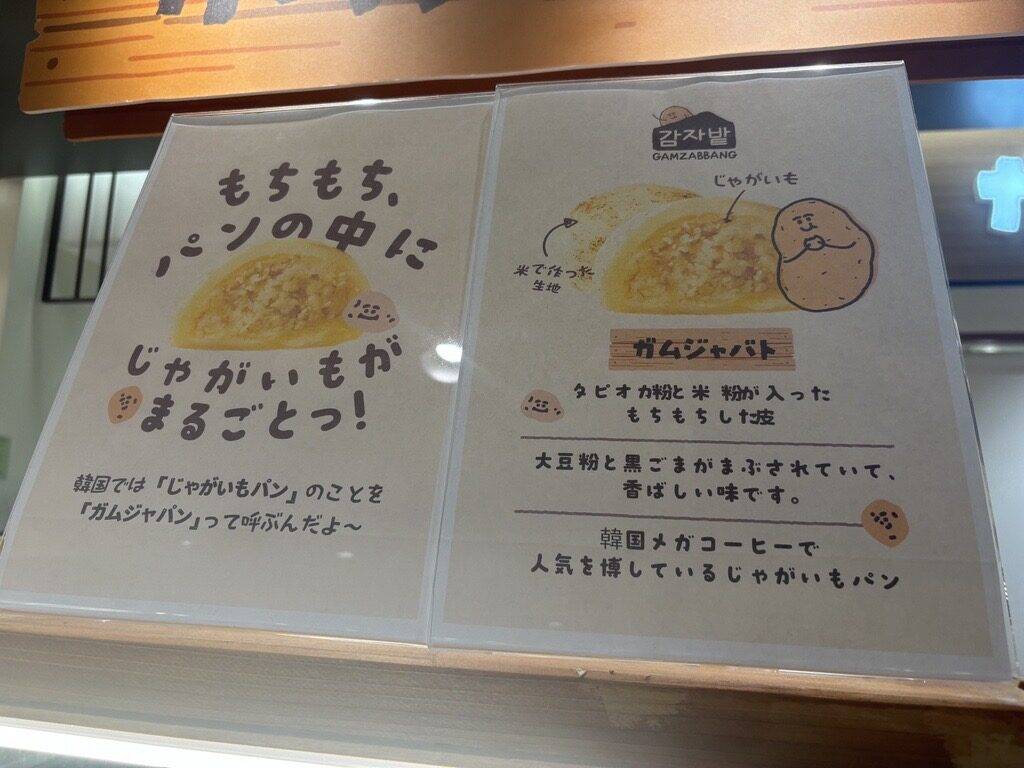 もちもち、
パンの中に
じゃがいもが
まるごとっ!
韓国では「じゃがいもパン」のことを
「ガムジャパン」って呼ぶんだよ〜
감자밭
GAMZABBANG
じゃがいも
米で作った
生地
ガムジャバト
タピオカ粉と米粉が入った
もちもちした皮
大豆粉と黒ごまがまぶされていて、
香ばしい味です。
韓国メガコーヒーで
人気を博しているじゃがいもパン